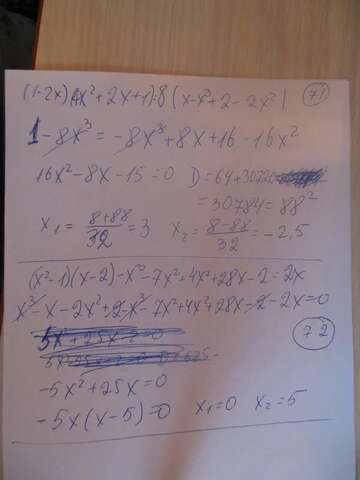 (1-2x)(4x²+2x+1)=8(x-x³+2-2x²)
71
1-8x³=-8x³+8x+16-16x²
16x²-8x-15=0 D=64+30720
=30784=88²
x₁=(8+88)/32=3 x₂=(8-88)/32=-2,5
(x²-1)(x-2)-x³-7x²+4x²+28x-2=2x
x³-x-2x²+2-x³-7x²+4x²+28x-2-2x=0
72
-5x²+25x=0
-5x(x-5)=0 x₁=0 x₂=5